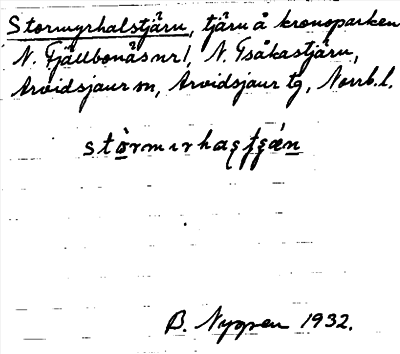 Stormyrhalstjärn, tjärn å kronoparken
N. Fjällbonäs nr 1, N. Tsåkastjärn,
Arvidsjaur sn, Arvidsjaur tg, Norrb. l.
B. Nyman 1932.